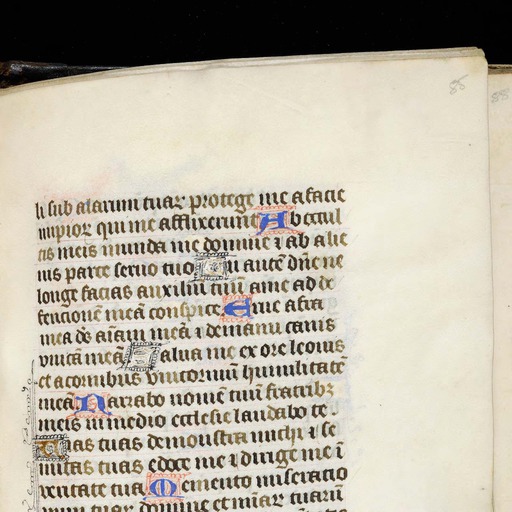 85
88
li sub alarum tuar protege me a facie
impior qui me afflixerunt Ab occul
tis meis munda me domine ⁊ ab alie
nis parce servo tuo Tu autē dn̄e ne
longe facias auxiliū tuū a me ad de
fencionē meā conspice Erue a fra
mea dē aīam meā ⁊ de manu canis
vnicā meā Salua me ex ore leonis
et a cornibus vnicornuū humilitatē
meā Narrabo nomē tuū fratribꝫ
meis in medio ecclesie laudabo te
Vias tuas demonstra michi ⁊ se
mitas tuas edoce me ⁊ dirige me ī
veritate tua Memento miseratio
num tuar domine et mīar tuarū